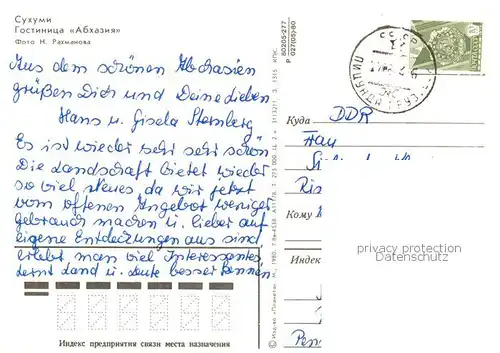 Сухуми
Гостиница «Абхазия»
Фото Н. Рахманова
Aus dem schönen Abchasien
grüßen Dich und Deine lieben
Hans u. Gisela Sternberg
Es ist wieder sehr sehr schön
Die Landschaft bietet wieder
so viel Neues, da wir jetzt
vom offenen Angebot weniger
gebrauch machen u. lieber auf
eigene Entdeckungen aus sind
erlebt man viel Interessantes,
lernt Land u. Leute besser kennen.
Индекс предприятия связи места назначения
80205-277
P 027(05)-80
СССР
Куда
DDR
Frau
Ris
Кому
Индек
privacy protection
Datenschutz